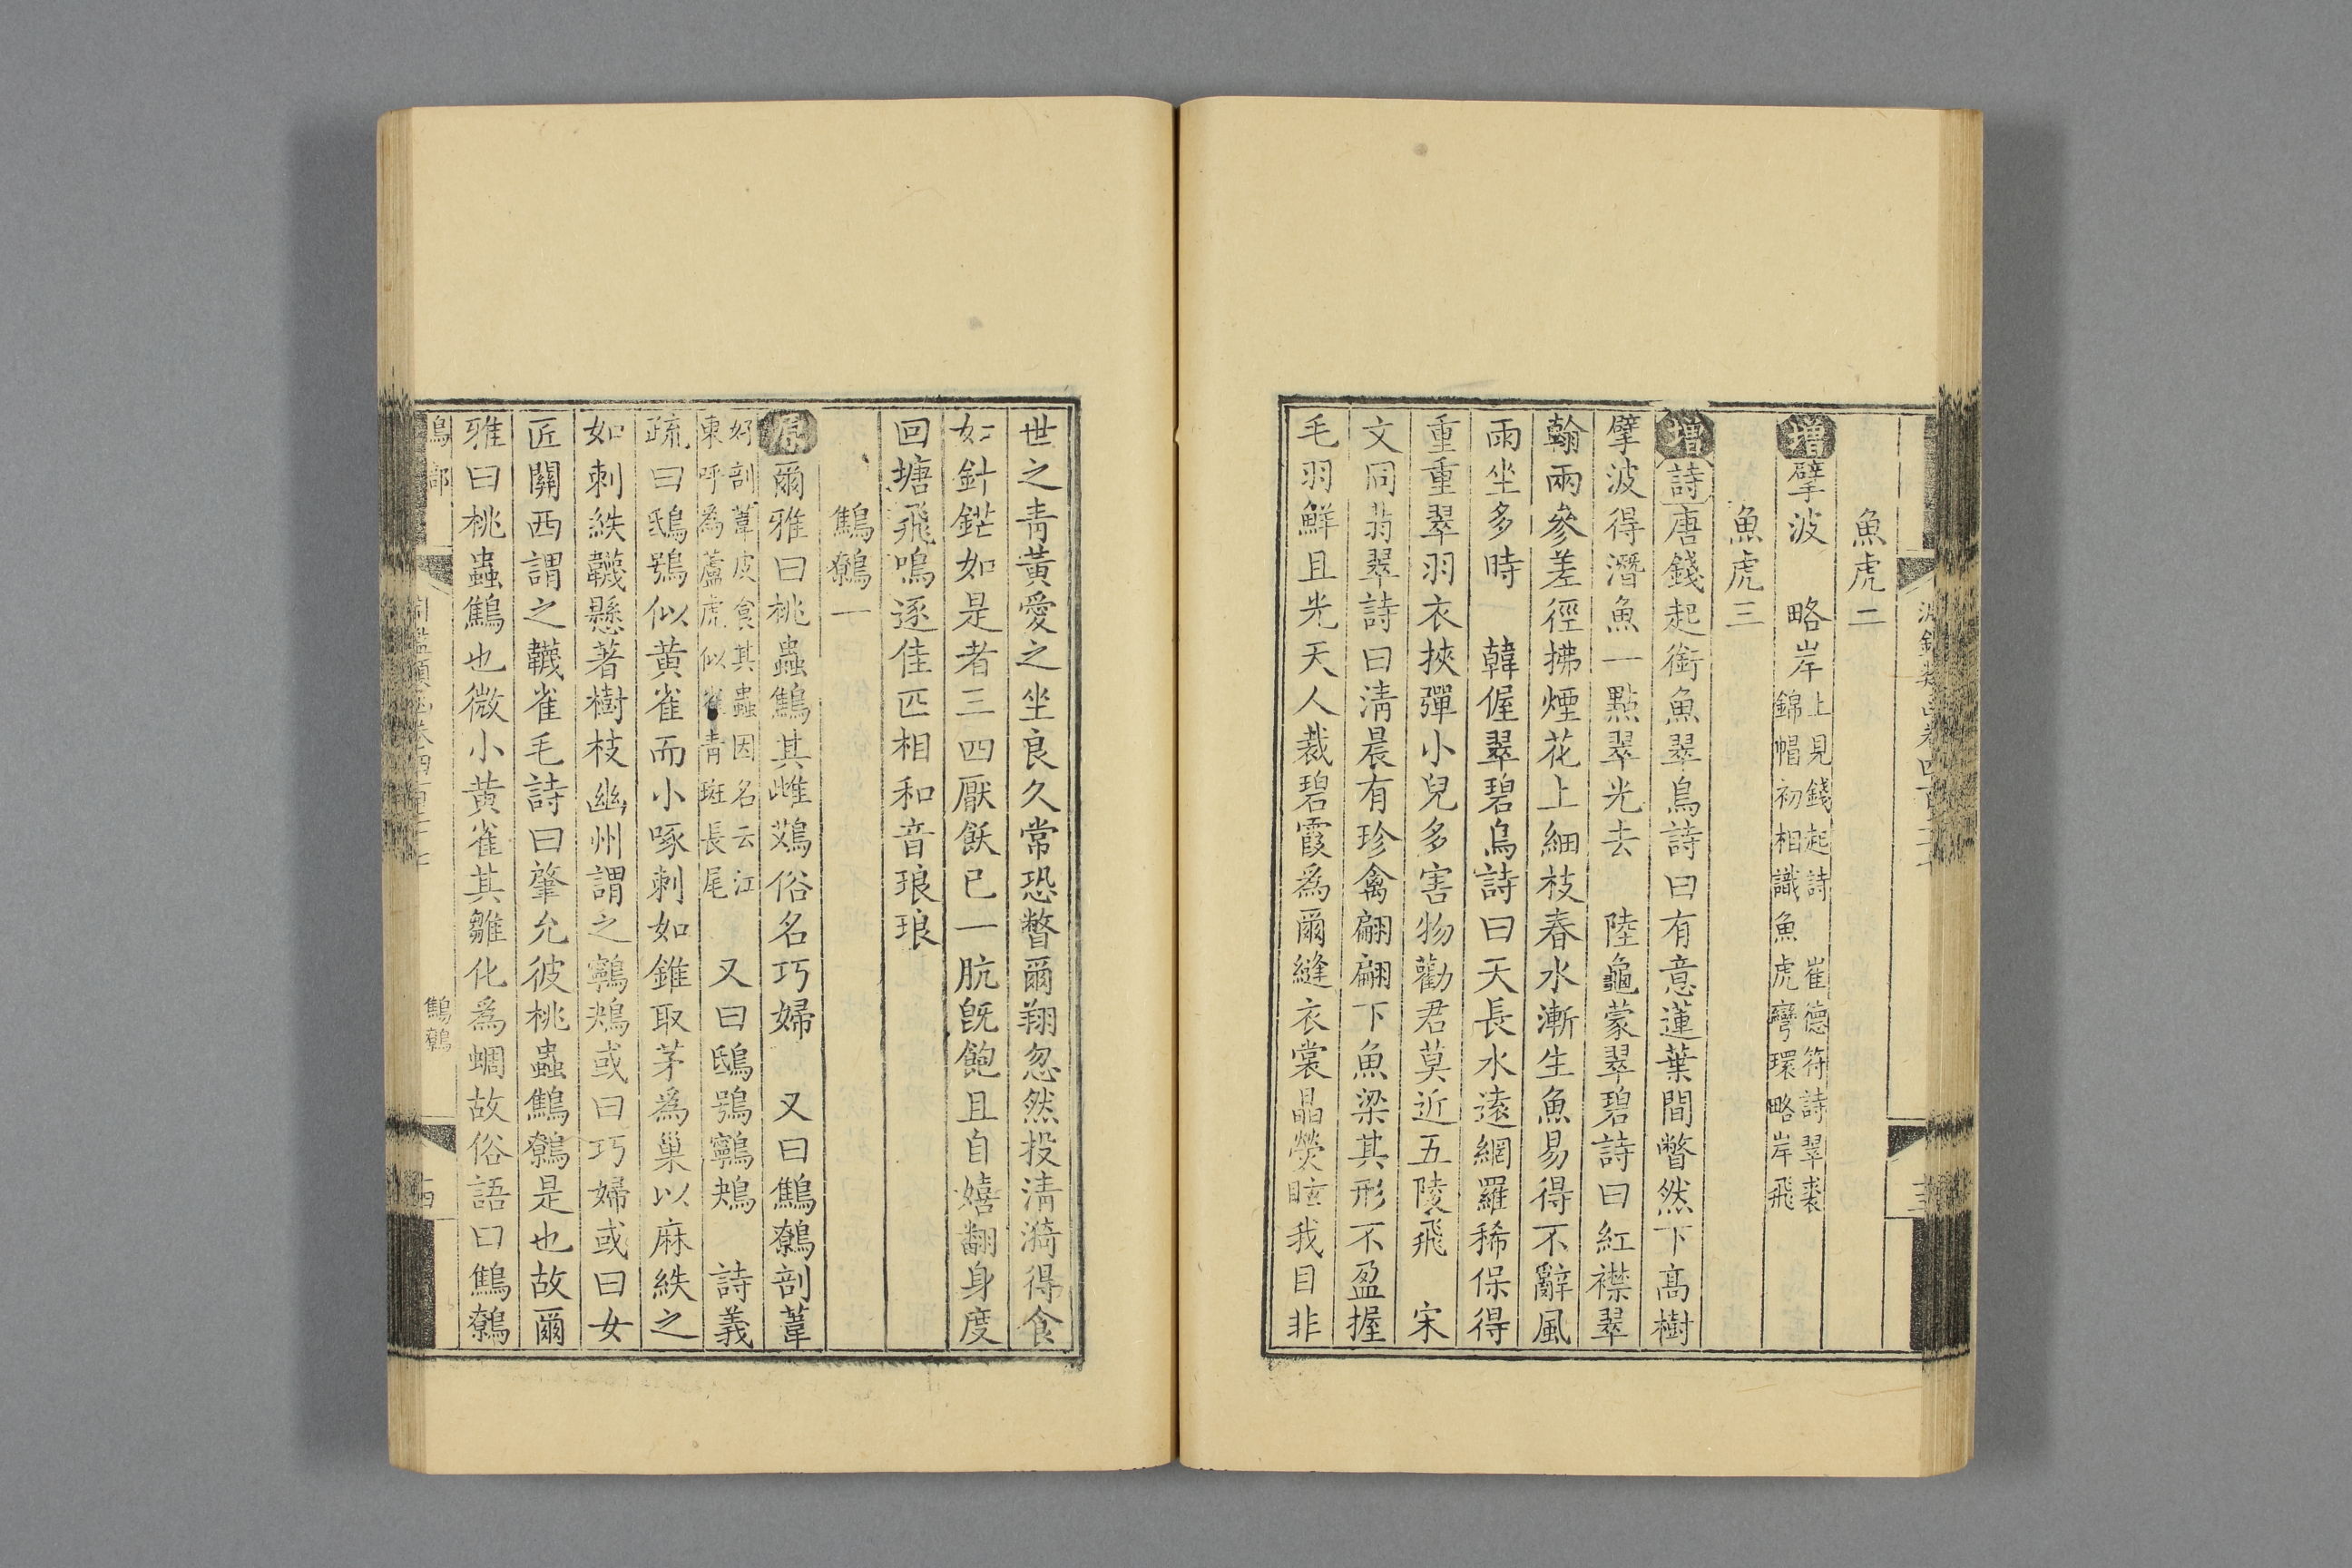 魚虎二
增擘波　略岸上見錢起詩　崔德符詩翠裘錦帽初相識魚虎彎環略岸飛
魚虎三
增詩唐錢起銜魚翠鳥詩曰有意蓮葉間瞥然下高樹
擘波得潛魚一點翠光去　陸龜蒙翠碧詩曰紅襟翠
翰兩參差徑拂煙花上細枝春水漸生魚易得不辭風
雨坐多時　韓偓翠碧鳥詩曰天長水遠網羅稀保得
重重翠羽衣挾彈小兒多害物勸君莫近五陵飛　宋
文同翡翠詩曰清晨有珍禽翩翩下魚梁其形不盈握
毛羽鮮且光天人裁碧霞為爾縫衣裳晶熒眩我目非
世之青黃愛之坐良久常恐瞥爾翔忽然投清漪得食
如針鋩如是者三四厭飫已一肮既飽且自嬉翻身度
回塘飛鳴逐佳匹相和音琅琅
鷦鷯一
原爾雅曰桃蟲鷦其雌鴱俗名巧婦　又曰鷦鷯剖葦
好剖葦皮食其蟲因名云江東呼為蘆虎似雀青斑長尾　又曰鴟鴞鸋鴂　詩義
疏曰鴟鴞似黃雀而小啄刺如錐取茅為巢以麻紩之
如刺紩韈懸著樹枝幽州謂之鸋鴂或曰巧婦或曰女
匠關西謂之韈雀毛詩曰肇允彼桃蟲鷦鷯是也故爾
雅曰桃蟲鷦也微小黃雀其雛化為鵰故俗語曰鷦鷯
鳥部　鷦鷯